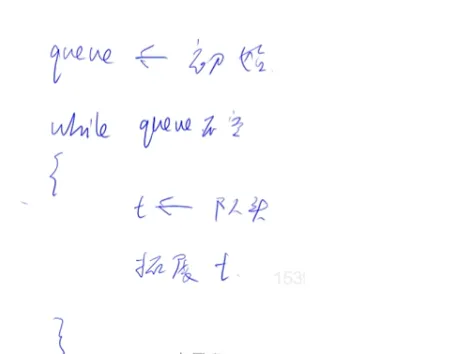 queue ← 初始
while queue不空
{
t ← 队头
拓展 t
1539
}